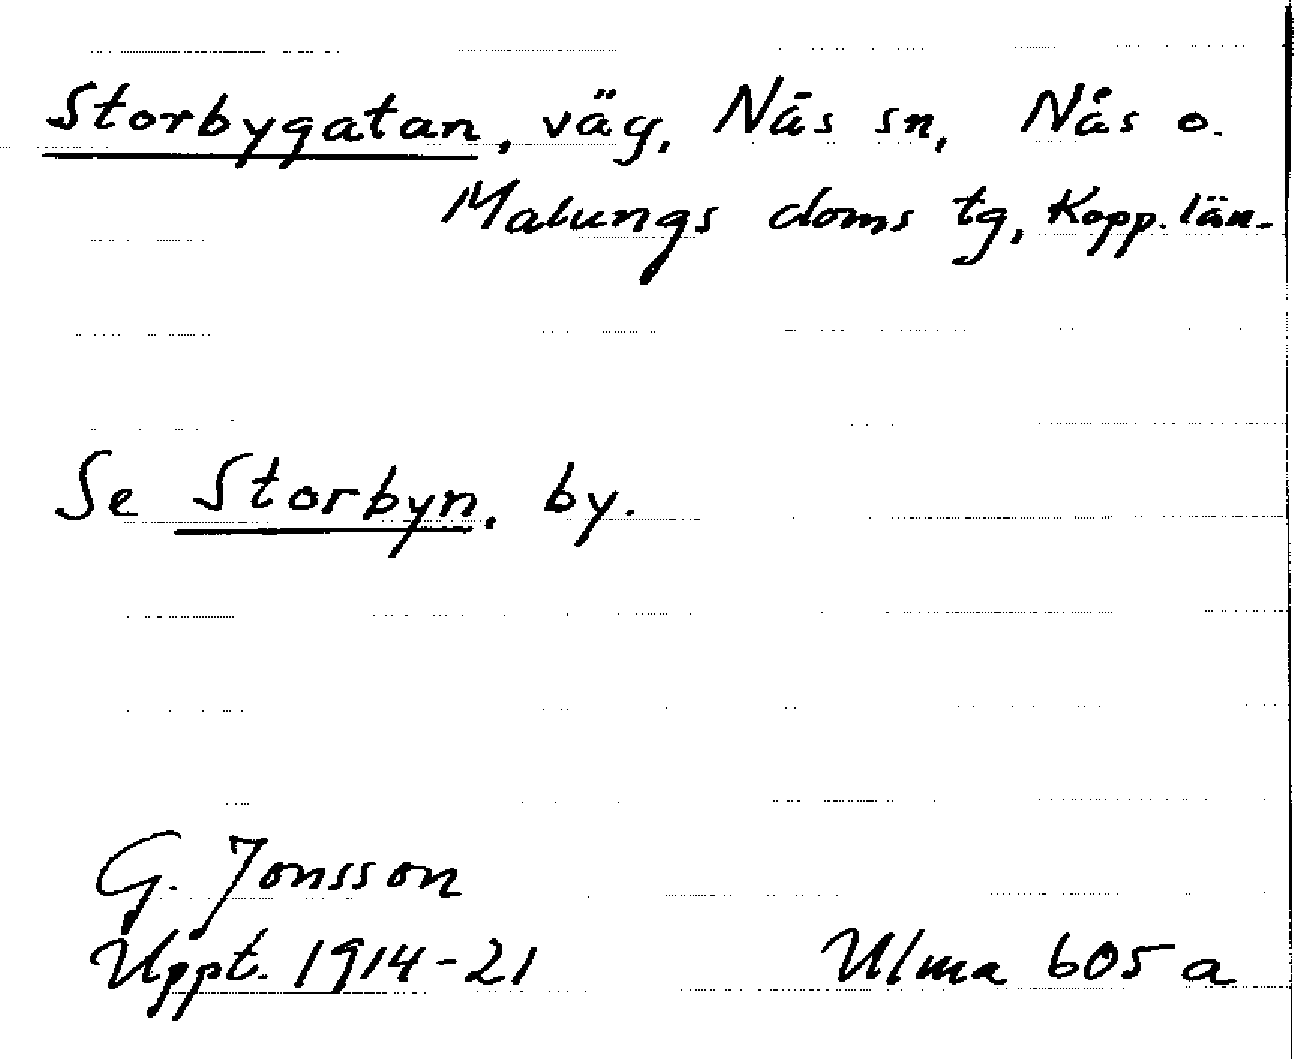 Storbygatan, väg, Nås sn, Nås o.
Malungs doms tg, Kopp. län.
Se Storbyn, by.
G. Jonsson
Uppt. 1914-21 Ulma 605 a